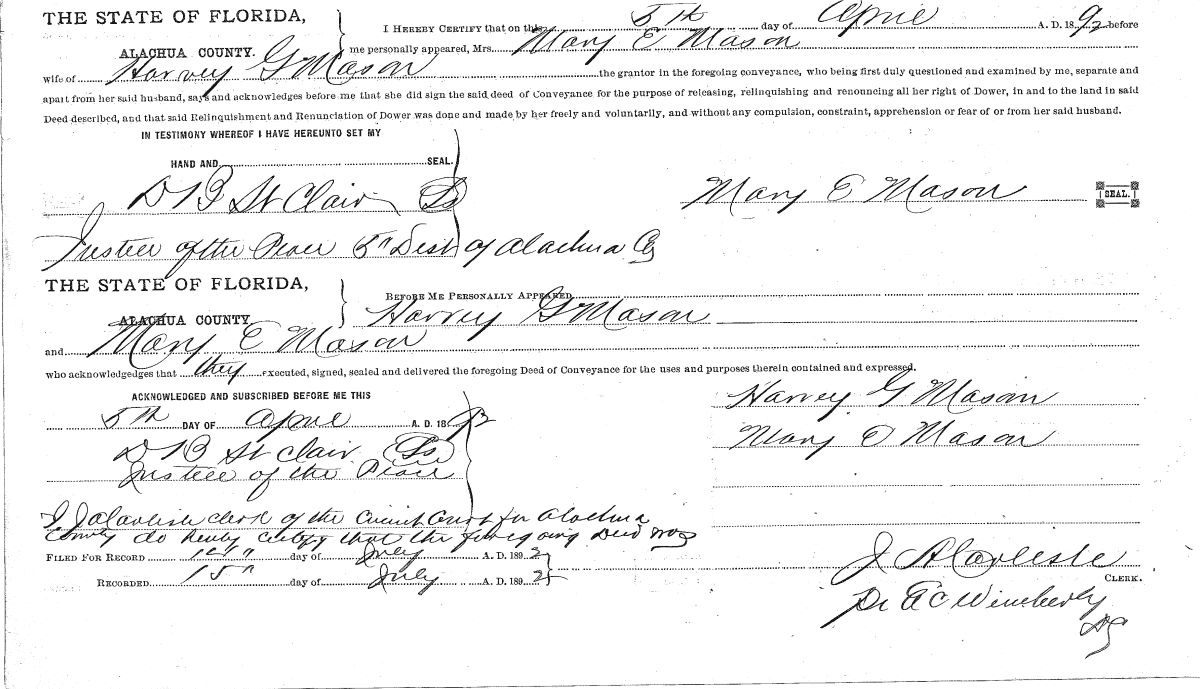 THE STATE OF FLORIDA,
ALACHUA COUNTY.
I HEREBY CERTIFY that on this 5th day of April A. D. 1892 before
me personally appeared, Mrs. Mary E Mason
wife of Harvey G Mason the grantor in the foregoing conveyance, who being first duly questioned and examined by me, separate and
apart from her said husband, says and acknowledges before me that she did sign the said deed of Conveyance for the purpose of releasing, relinquishing and renouncing all her right of Dower, in and to the land in said
Deed described, and that said Relinquishment and Renunciation of Dower was done and made by her freely and voluntarily, and without any compulsion, constraint, apprehension or fear of or from her said husband.
IN TESTIMONY WHEREOF I HAVE HEREUNTO SET MY
HAND AND SEAL.
D B St Clair Ls
Mary E Mason SEAL.
Justice of the Peace 5" Dist of Alachua Co
THE STATE OF FLORIDA,
ALACHUA COUNTY
BEFORE ME PERSONALLY APPEARED
Harvey G Mason
and Mary E Mason
who acknowledgedges that they executed, signed, sealed and delivered the foregoing Deed of Conveyance for the uses and purposes therein contained and expressed.
ACKNOWLEDGED AND SUBSCRIBED BEFORE ME THIS
5th DAY OF April A. D. 1892
Harvey G Mason
D B St Clair Ls
Mary E Mason
Justice of the Peace
I, J A Carlisle Clerk of the Circuit Court for Alachua
County do hereby certify that the foregoing Deed was
FILED FOR RECORD day of July A. D. 1892
RECORDED 15" day of July A. D. 1892
J A Carlisle
CLERK.
Pr A C Wimberly